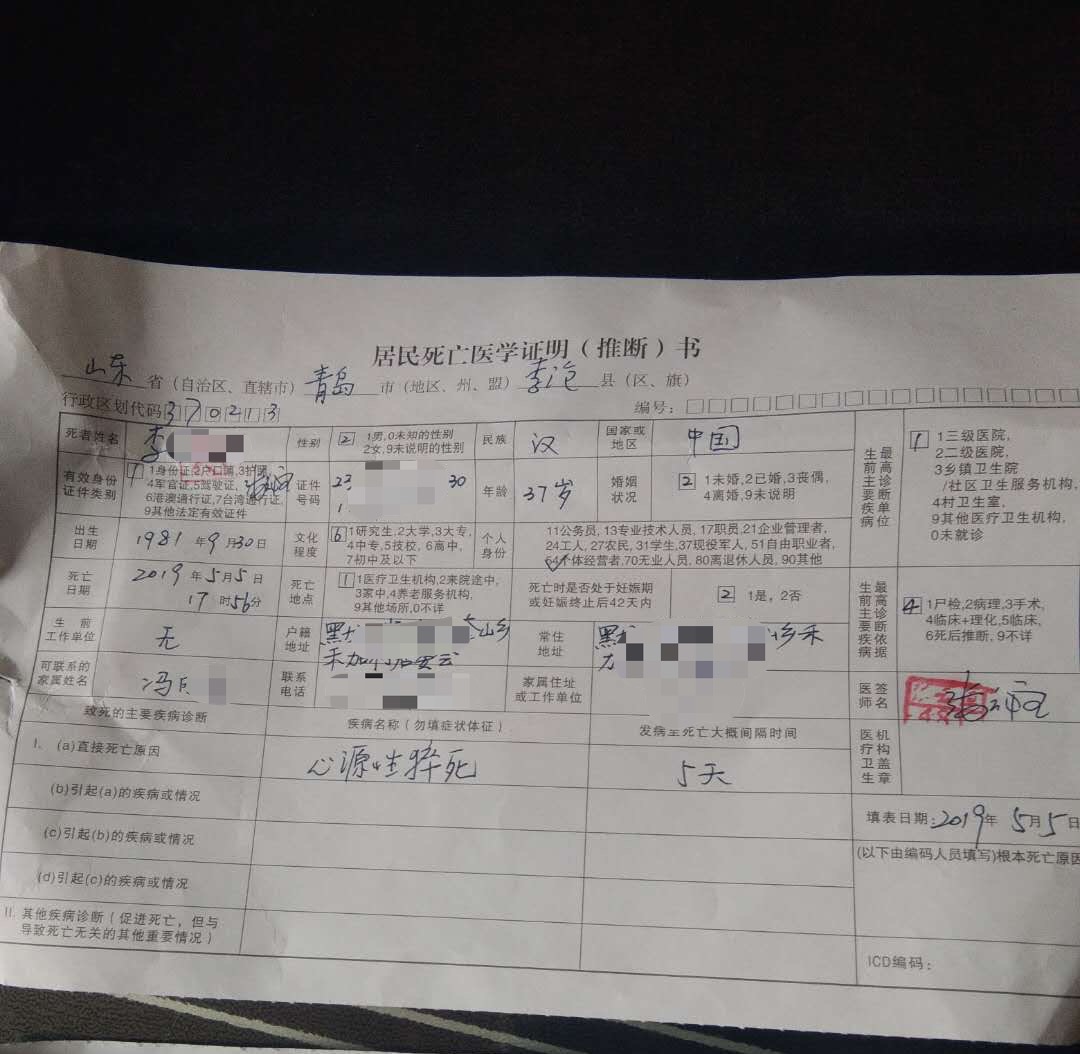 居民死亡医学证明（推断）书
山东 省（自治区、直辖市） 青岛 市（地区、州、盟） 李沧 县（区、旗）
行政区划代码 370213 编号：
死者姓名 李
性别 2 1男,0未知的性别
2女,9未说明的性别
民族 汉
国家或地区 中国
最高诊断单位
生前主要疾病
1 1三级医院,
2二级医院,
3乡镇卫生院
/社区卫生服务机构,
4村卫生室,
9其他医疗卫生机构,
0未就诊
有效身份
证件类别
1 1身份证,2户口簿,3护照,
4军官证,5驾驶证,
6港澳通行证,7台湾通行证,
9其他法定有效证件
证件
号码
23 30
1
年龄 37岁
婚姻
状况
2 1未婚,2已婚,3丧偶,
4离婚,9未说明
出生
日期
1981 年 9 月 30 日
文化
程度
6 1研究生,2大学,3大专,
4中专,5技校, 6高中,
7初中及以下
个人
身份
11公务员, 13专业技术人员, 17职员,21企业管理者,
24工人, 27农民, 31学生,37现役军人, 51自由职业者,
54个体经营者,70无业人员, 80离退休人员, 90其他
死亡
日期
2019 年 5 月 5 日
17 时 56 分
死亡
地点
1 1医疗卫生机构,2来院途中,
3家中,4养老服务机构,
9其他场所,0不详
死亡时是否处于妊娠期
或妊娠终止后42天内
2 1是, 2否
最高诊断依据
生前主要疾病
4 1尸检,2病理,3手术,
4临床+理化,5临床,
6死后推断, 9不详
生前
工作单位
无
户籍
地址
黑龙 山乡
禾加
常住
地址
黑龙 乡禾
可联系的
家属姓名
冯
联系
电话
家属住址
或工作单位
医师
签名
致死的主要疾病诊断
疾病名称（勿填症状体征）
发病至死亡大概间隔时间
I. (a)直接死亡原因 心源性猝死 5天
医疗卫生
机构盖章
(b)引起(a)的疾病或情况
填表日期:2019年 5月5日
(c)引起(b)的疾病或情况
(以下由编码人员填写)根本死亡原因
(d)引起(c)的疾病或情况
II. 其他疾病诊断（促进死亡，但与
导致死亡无关的其他重要情况）
ICD编码：